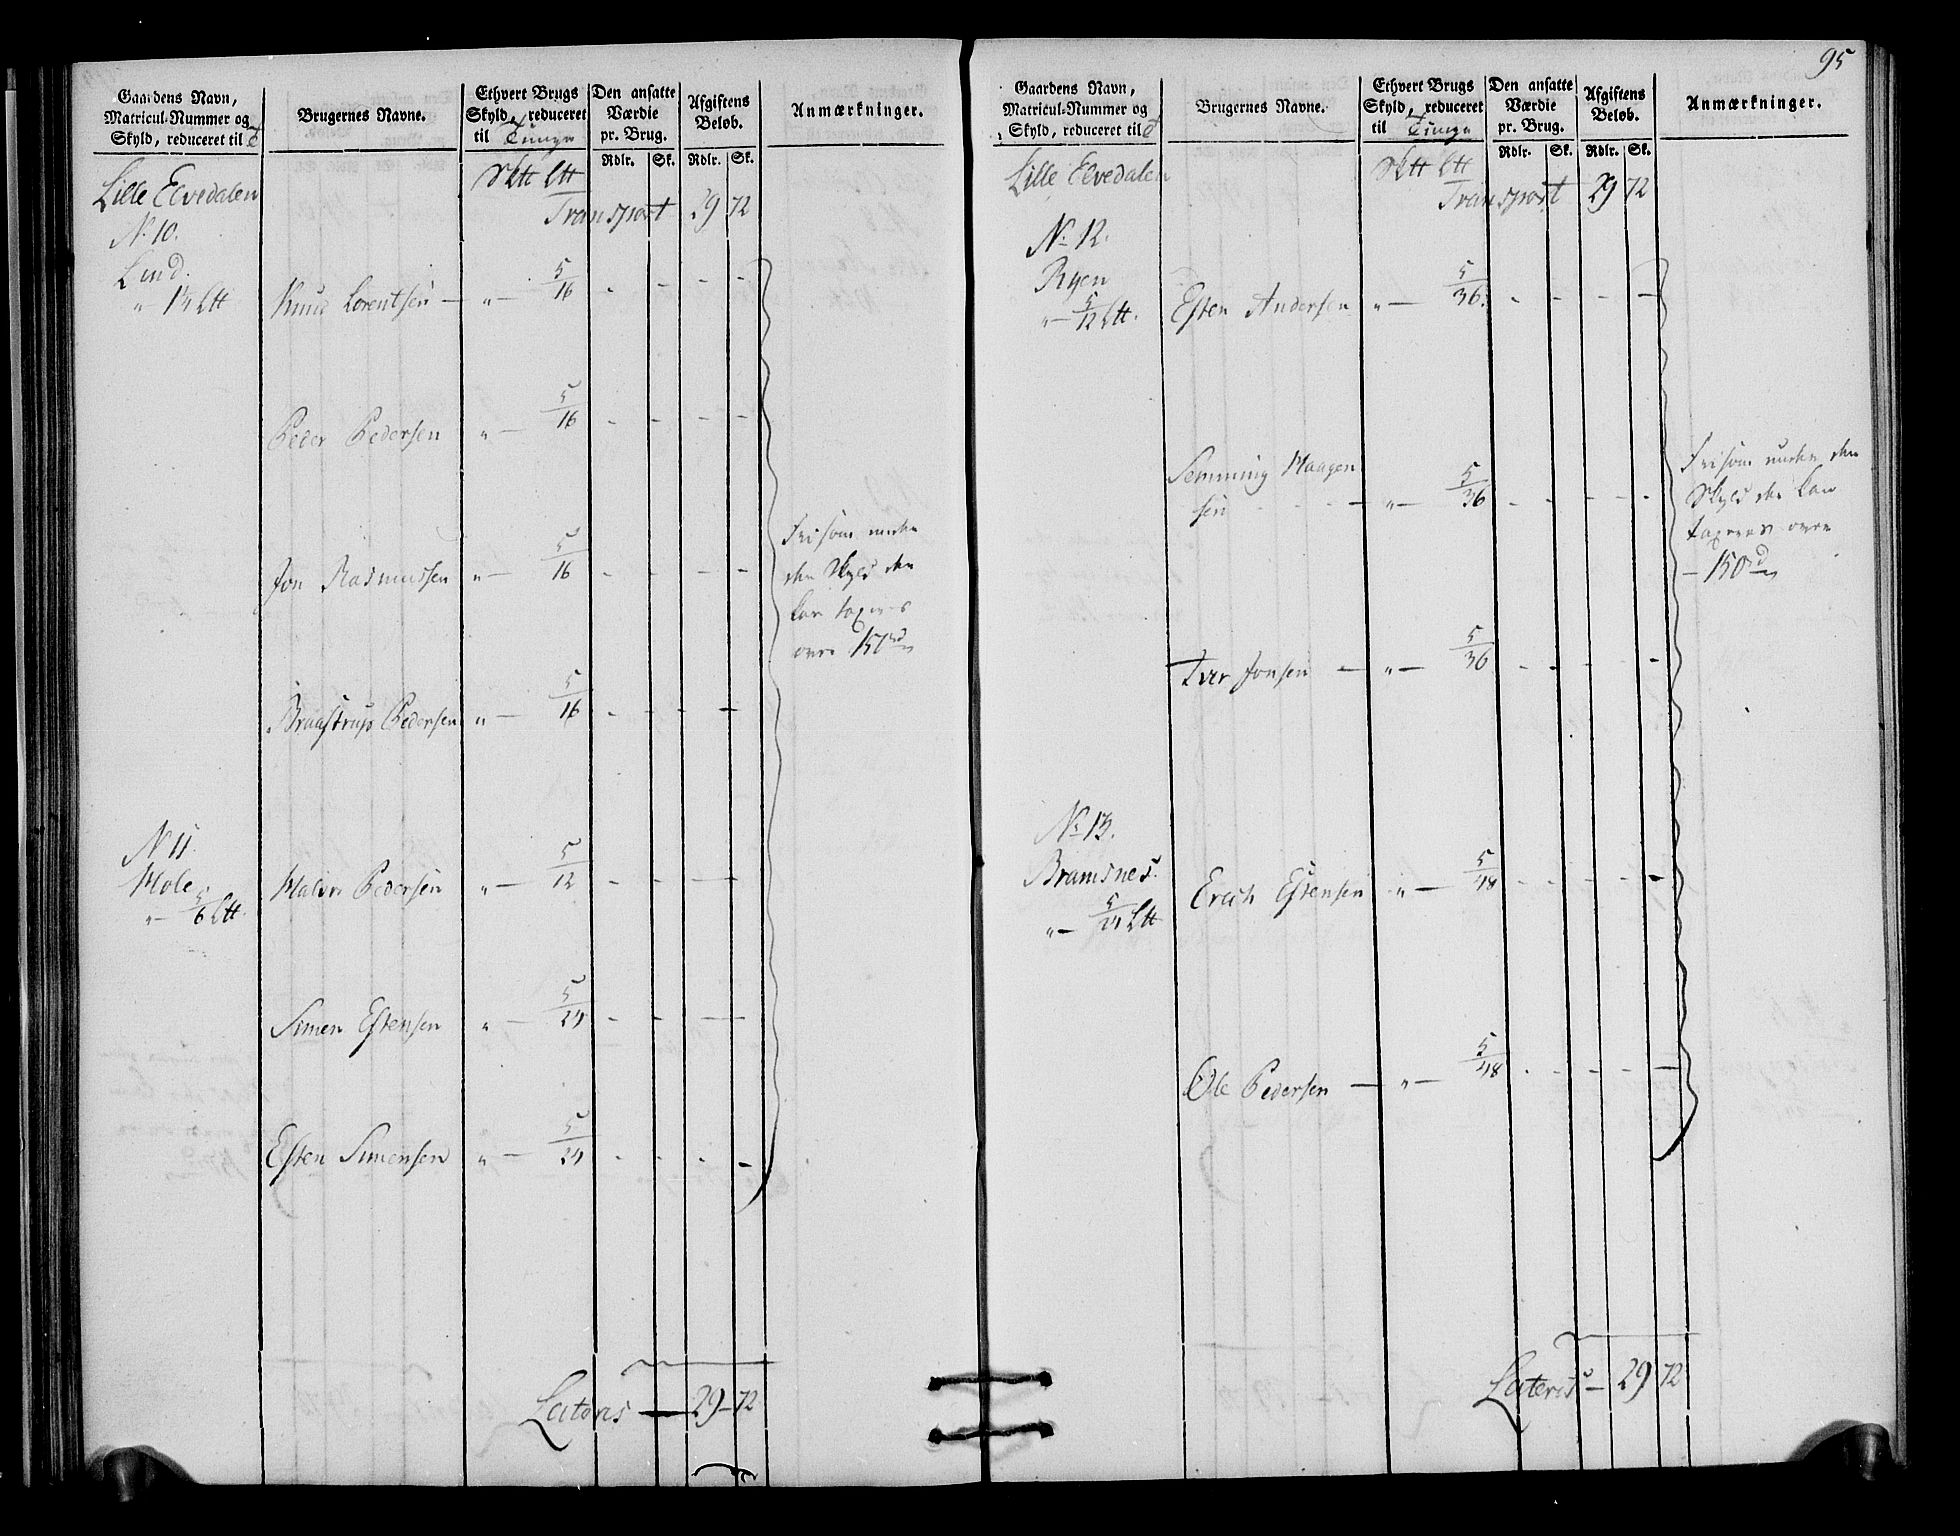 Gaardens Navn,
Matricul-Nummer og
Skyld, reduceret til T
Brugernes Navne.
Ethvert Brugs
Skyld, reduceret
til Tunge
Den ansatte
Værdie
pr. Brug.
Rdlr. Sk.
Afgiftens
Beløb.
Rdlr. Sk.
Anmærkninger.
Lille Elvedalen
Transport 29 72
N. 10.
Lund.
Knud Lorentsen — „ — 5/16 - - - -
Peder Pedersen „ — 5/16 - - - -
Jon Rasmussen „ — 5/16 - - - -
Frisom under
den Skyld der
kan taxeres
over 150 rd
Braastrup Pedersen „ — 5/16 - - - -
N 11
Hole
„ — 5/6 Ltt.
Halvor Pedersen „ — 5/12 - - - -
Simen Estensen „ — 5/24 - - - -
Esten Simensen „ — 5/24 - - - -
Lateris — 29 — 72
95
Gaardens Navn,
Matricul-Nummer og
Skyld, reduceret til T
Brugernes Navne.
Ethvert Brugs
Skyld, reduceret
til Tunge
Den ansatte
Værdie
pr. Brug.
Rdlr. Sk.
Afgiftens
Beløb.
Rdlr. Sk.
Anmærkninger.
Lille Elvedalen
Transport 29 72
No 12.
Ryen
„ — 5/12 Ltt.
Esten Andersen „ — 5/36 - - - -
Semming Haagen
sen - - - — „ — 5/36 - - - -
Frisom under den
Skyld der kan
taxeres over
— 150 rd
Iver Jonsen — „ — 5/36 - - - -
No 13.
Bramsnes.
„ — 5/24 Ltt
Erich Estensen „ — 5/48 - - - -
Ole Pedersen — „ — 5/48 - - - -
Lateris — 29 72